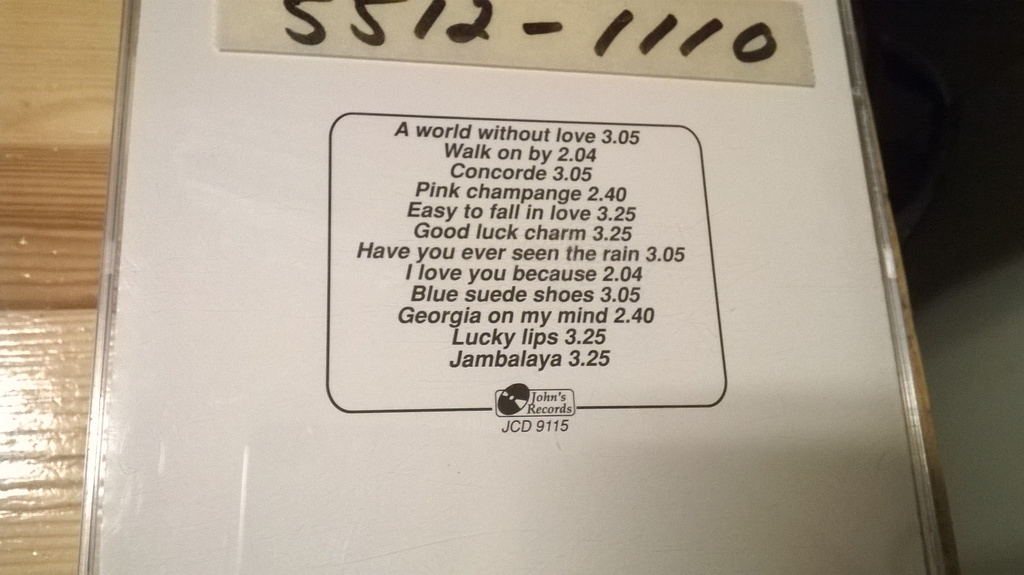 5512-1110
A world without love 3.05
Walk on by 2.04
Concorde 3.05
Pink champange 2.40
Easy to fall in love 3.25
Good luck charm 3.25
Have you ever seen the rain 3.05
I love you because 2.04
Blue suede shoes 3.05
Georgia on my mind 2.40
Lucky lips 3.25
Jambalaya 3.25
John's
Records
JCD 9115